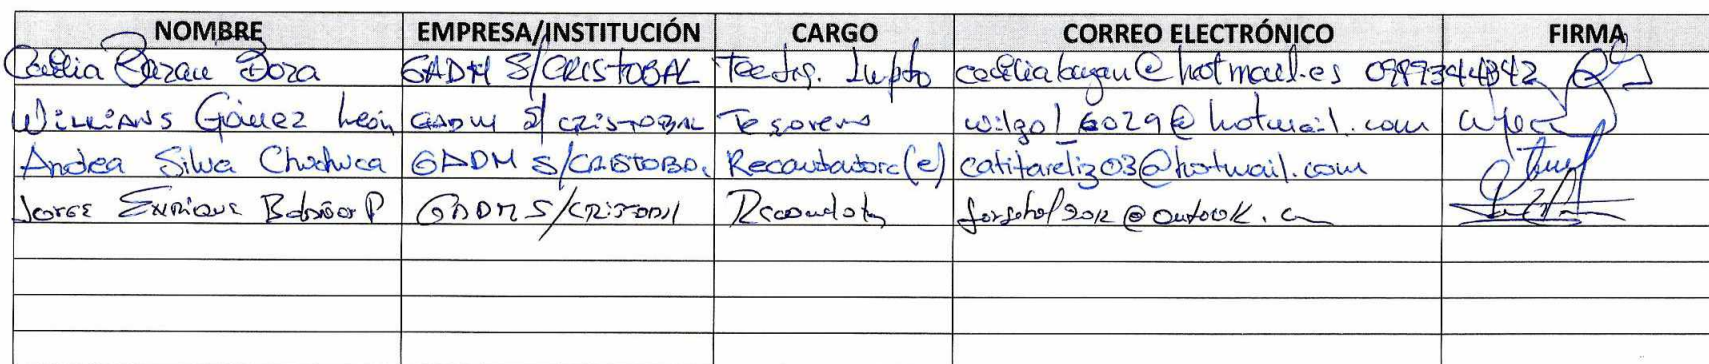 NOMBRE EMPRESA/INSTITUCIÓN CARGO CORREO ELECTRÓNICO FIRMA
Cecilia Bazan GADM S/CRISTOBAL cecilialbazan@hotmail.es
Williams Gómez León GADM S/ CRISTOBAL Tesorero wilgol_6029@hotmail.com
Andrea Silva Chuchuca GADM S/CRISTOBA. Recaudadora(e) catitareliz03@hotmail.com
Jorge Enrique GADM S/CRISTOBAL Recaudador